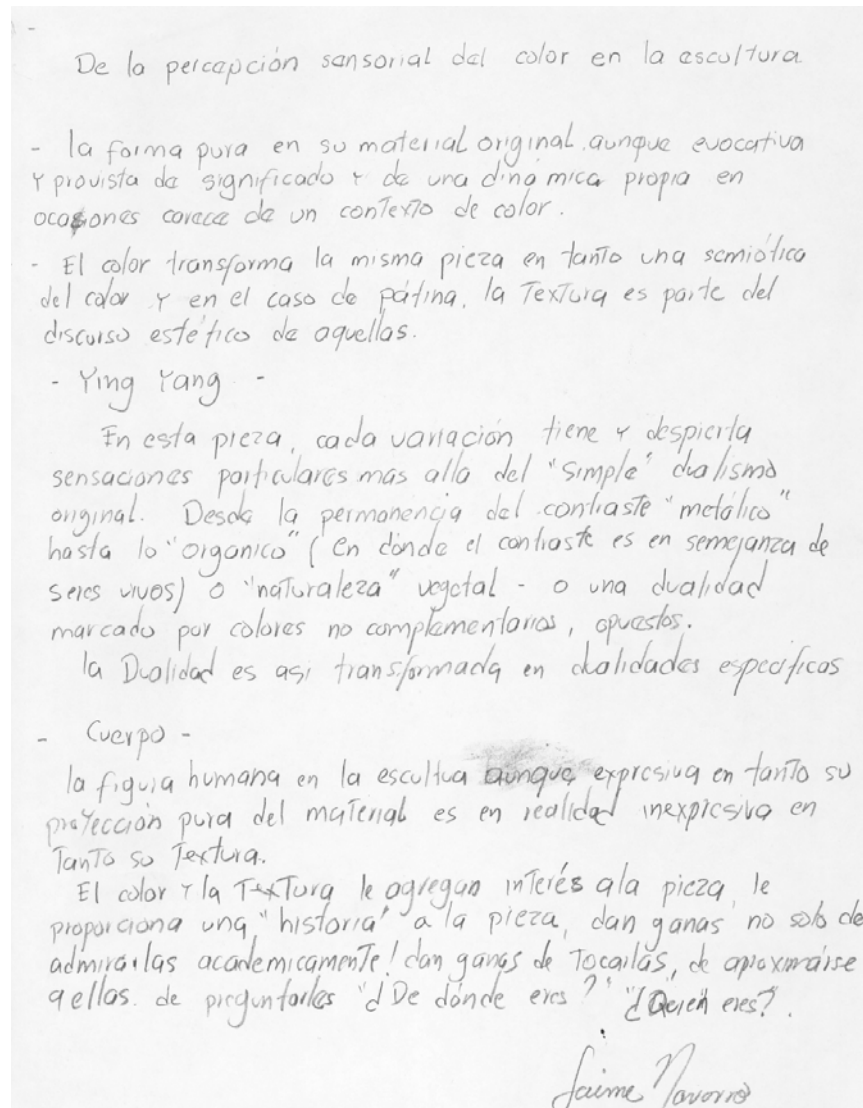 De la percepción sensorial del color en la escultura
- la forma pura en su material original. aunque evocativa
y provista de significado y de una dinámica propia en
ocasiones carece de un contexto de color.
- El color transforma la misma pieza en tanto una semiótica
del color y en el caso de pátina, la Textura es parte del
discurso estético de aquellas.
- Ying Yang -
En esta pieza, cada variación tiene y despierta
sensaciones particulares más alla del "simple" dualismo
original. Desde la permanencia del contraste "metálico"
hasta lo "organico" (en dónde el contraste es en semejanza de
seres vivos) o "naturaleza" vegetal - o una dualidad
marcado por colores no complementarios, opuestos.
la Dualidad es asi transformada en dualidades especificas
- Cuerpo -
la figura humana en la escultua aunque, expresiva en tanto su
proyección pura del material es en realidad inexpresiva en
Tanto su Textura.
El color y la Textura le agregan interés ala pieza, le
proporciona una "historia" a la pieza, dan ganas no solo de
admirarlas academicamente! dan ganas de Tocarlas, de aproximarse
a ellas. de preguntarles "¿De dónde eres?" "¿Quien eres?".
Jaime Navarro